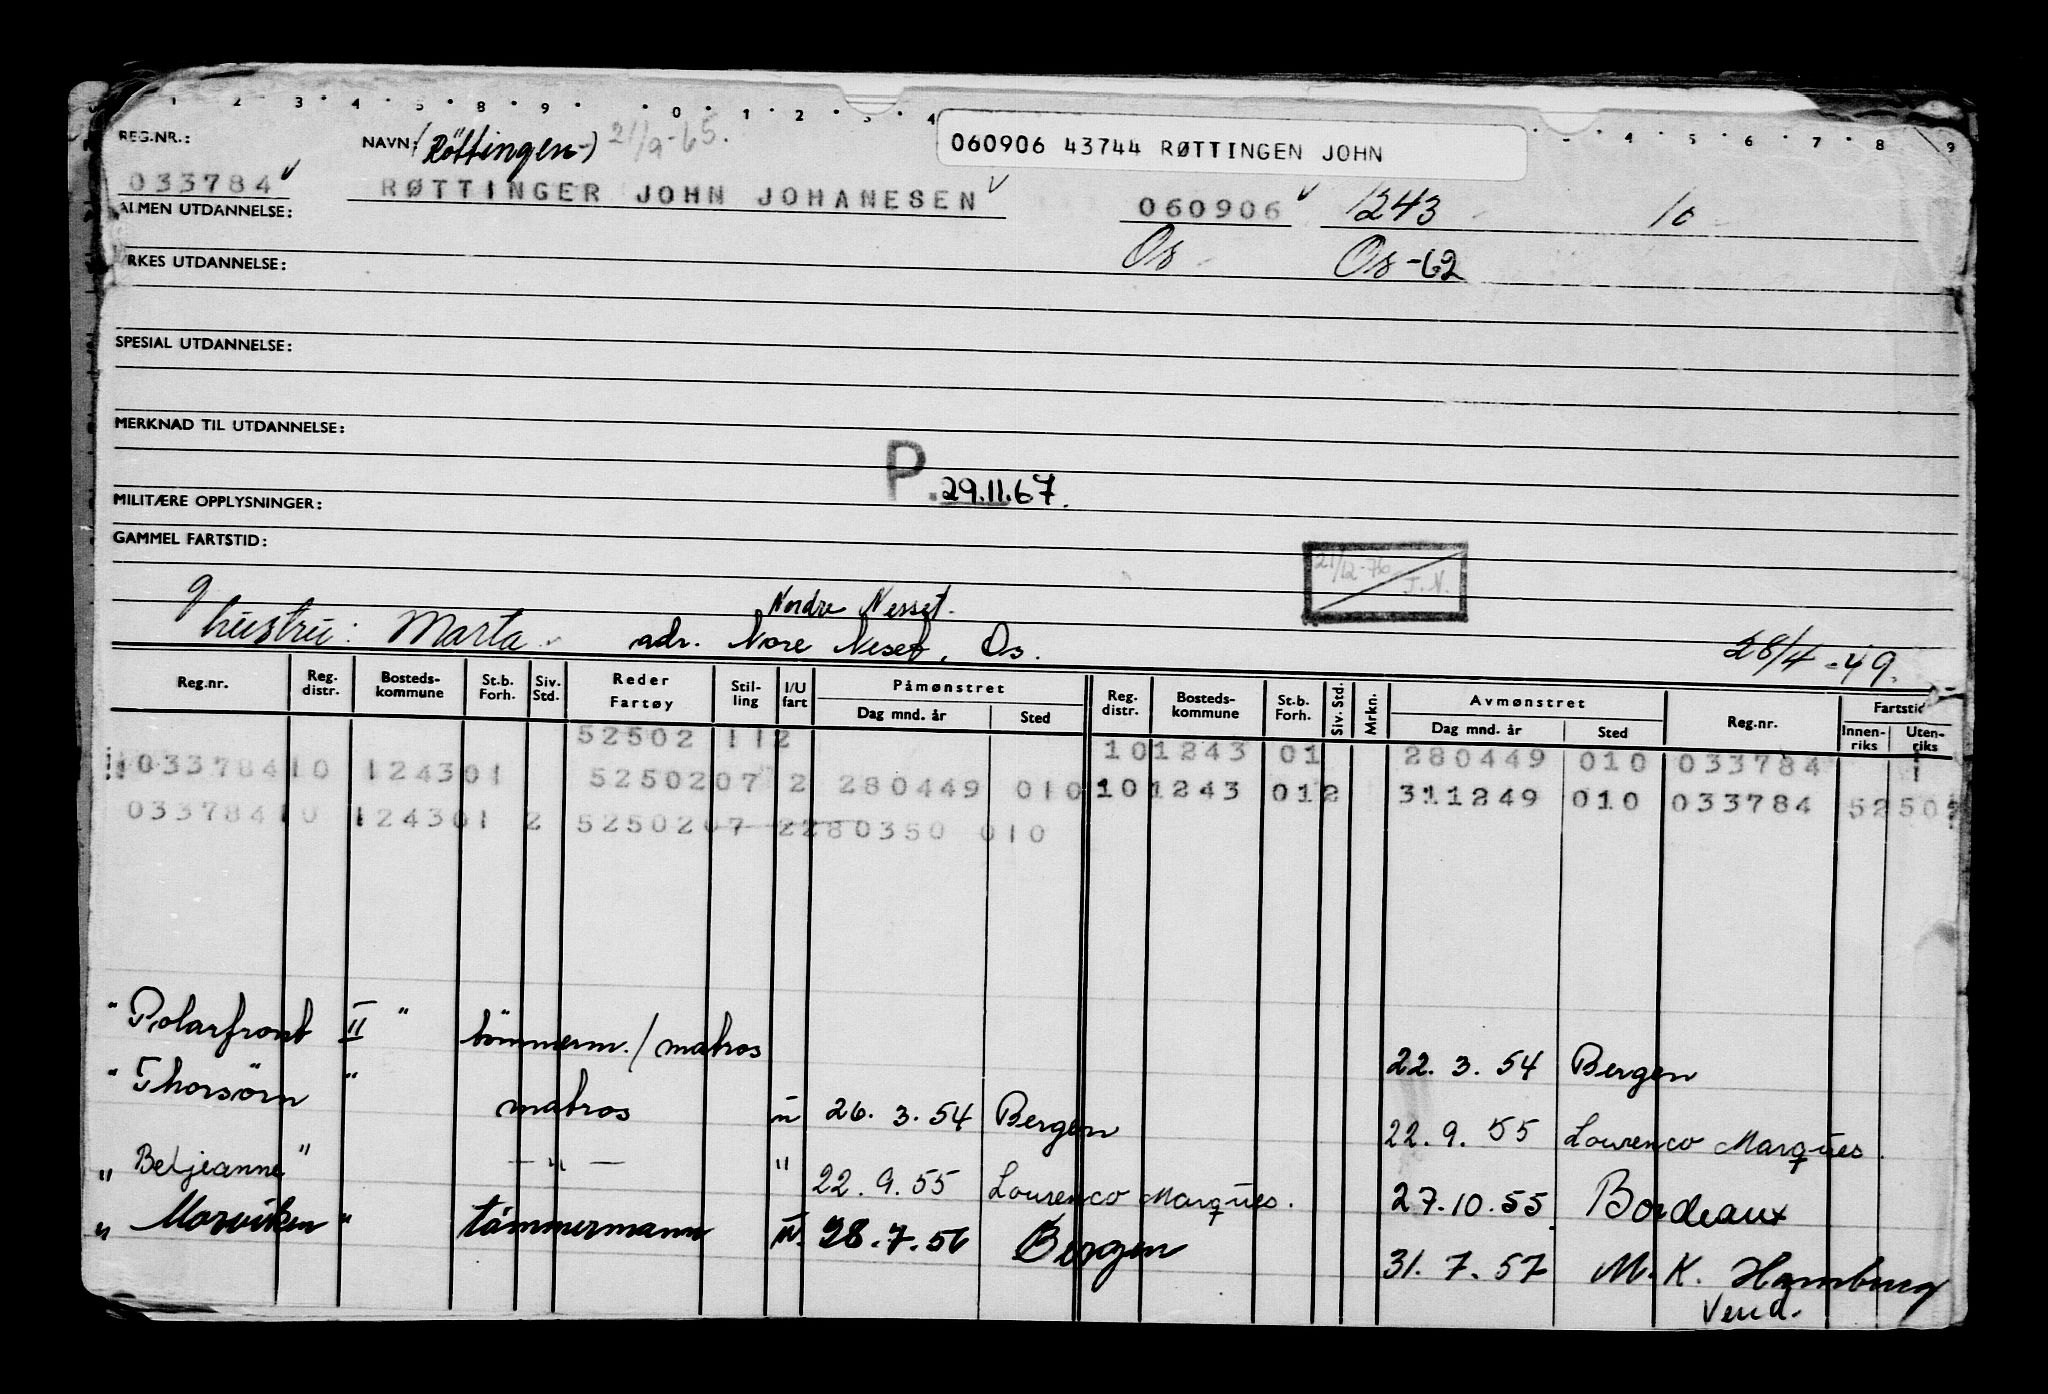 REG.NR.: NAVN: (Röttingen) 21/9-65. 060906 43744 RØTTINGEN JOHN
033784 RØTTINGER JOHN JOHANESEN 060906 1243 10
ALMEN UTDANNELSE: Os Os -62
YRKES UTDANNELSE:
SPESIAL UTDANNELSE:
MERKNAD TIL UTDANNELSE:
P. 29.11.67.
MILITÆRE OPPLYSNINGER:
GAMMEL FARTSTID:
21/12-76 J.N.
Nordre Nesset.
g hustru: Marta adr. Nore Neset, Os. 28/4-49.
Reg.nr. Reg. distr. Bosteds-kommune St.b. Forh. Siv. Std. Reder Fartøy Stil-ling I/U fart Påmønstret Dag mnd. år Sted Reg. distr. Bosteds-kommune St.b. Forh. Siv. Std. Mrkn. Avmønstret Dag mnd. år Sted Reg.nr. Fartstid Innen-riks Uten-riks
52502 112 101243 01 280449 010 033784
033784 10 1243 01 52502 07 2 280449 010 10 1243 01 2 311249 010 033784 52502
033784 10 1243 01 2 52502 07 2 280350 010
" Polarfront II " tömmerm./matros 22. 3. 54 Bergen
" Thorsörn " matros u 26. 3. 54 Bergen 22. 9. 55 Lourenco Marques.
" Beljeanne " — " — " 22. 9. 55 Lourenco Marques. 27.10.55 Bordeaux
" Morviken " tömmermann u. 28.7.56 Bergen 31. 7. 57 M.K. Hamburg
Vend.